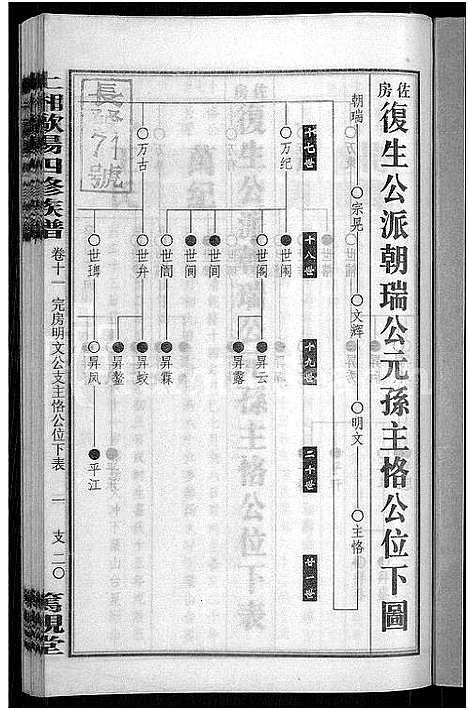 佐房
復生公派朝瑞公元孫主恪公位下圖
朝瑞 ○宗晃 ○文辉 ○明文 ○主恪
十七世
十八世
十九世
二十世
廿一世
○万纪
○万古
●世阁
○世阁
●世间
●世间
○世訚
○世弁
○世瑯
●昇云
●昇露
●昇霖
●昇蛟
●昇鳌
○昇凤
●平江
長 71號
上湘歐陽四修族譜
卷十一 完房明文公支主恪公位下表 一 支 二〇
篤親堂